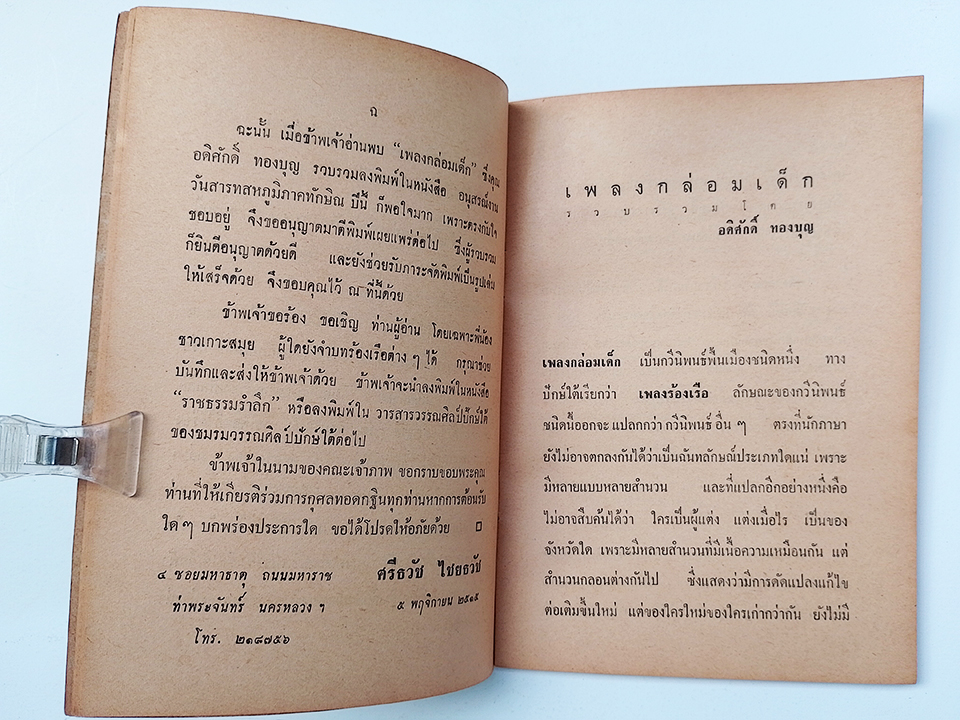 ฉ
ฉะนั้น เมื่อข้าพเจ้าอ่านพบ “เพลงกล่อมเด็ก” ซึ่งคุณ
อดิศักดิ์ ทองบุญ รวบรวมลงพิมพ์ในหนังสือ อนุสรณ์งาน
วันสารทสหภูมิภาคทักษิณ ปีนี้ ก็พอใจมาก เพราะตรงกับใจ
ชอบอยู่ จึงขออนุญาตมาตีพิมพ์เผยแพร่ต่อไป ซึ่งผู้รวบรวม
ก็ยินดีอนุญาตด้วยดี และยังช่วยรับภาระจัดพิมพ์เป็นรูปเล่ม
ให้เสร็จด้วย จึงขอบคุณไว้ ณ ที่นี้ด้วย
ข้าพเจ้าขอร้อง ขอเชิญ ท่านผู้อ่าน โดยเฉพาะพี่น้อง
ชาวเกาะสมุย ผู้ใดยังจำบทร้องเรือต่าง ๆ ได้ กรุณาช่วย
บันทึกและส่งให้ข้าพเจ้าด้วย ข้าพเจ้าจะนำลงพิมพ์ในหนังสือ
“ราชธรรมรำลึก” หรือลงพิมพ์ใน วารสารวรรณศิลป์ปักษ์ใต้
ของชมรมวรรณศิลป์ปักษ์ใต้ต่อไป
ข้าพเจ้าในนามของคณะเจ้าภาพ ขอกราบขอบพระคุณ
ท่านที่ให้เกียรติร่วมการกุศลทอดกฐินทุกท่านหากการต้อนรับ
ใด ๆ บกพร่องประการใด ขอได้โปรดให้อภัยด้วย
ศรีธวัช ไชยธวัช
๔ ซอยมหาธาตุ ถนนมหาราช
ท่าพระจันทร์ นครหลวง ฯ
๕ พฤศจิกายน ๒๕๑๕
โทร. ๒๑๘๗๕๖
เพลงกล่อมเด็ก
รวบรวมโดย
อดิศักดิ์ ทองบุญ
เพลงกล่อมเด็ก เป็นกวีนิพนธ์พื้นเมืองชนิดหนึ่ง ทาง
ปักษ์ใต้เรียกว่า เพลงร้องเรือ ลักษณะของกวีนิพนธ์
ชนิดนี้ออกจะ แปลกกว่า กวีนิพนธ์ อื่น ๆ ตรงที่นักภาษา
ยังไม่อาจตกลงกันได้ว่าเป็นฉันทลักษณ์ประเภทใดแน่ เพราะ
มีหลายแบบหลายสำนวน และที่แปลกอีกอย่างหนึ่งคือ
ไม่อาจสืบค้นได้ว่า ใครเป็นผู้แต่ง แต่งเมื่อไร เป็นของ
จังหวัดใด เพราะมีหลายสำนวนที่มีเนื้อความเหมือนกัน แต่
สำนวนกลอนต่างกันไป ซึ่งแสดงว่ามีการดัดแปลงแก้ไข
ต่อเติมขึ้นใหม่ แต่ของใครใหม่ของใครเก่ากว่ากัน ยังไม่มี